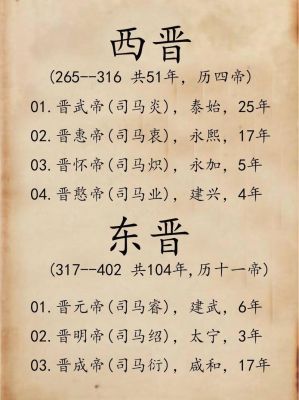 西晋
(265--316 共51年，历四帝)
01.晋武帝(司马炎)，泰始，25年
02.晋惠帝(司马衷)，永熙，17年
03.晋怀帝(司马炽)，永加，5年
04.晋憨帝(司马业)，建兴，4年
东晋
(317--402 共104年,历十一帝)
01.晋元帝(司马睿)，建武，6年
02.晋明帝(司马绍)，太宁，3年
03.晋成帝(司马衍)，咸和，17年